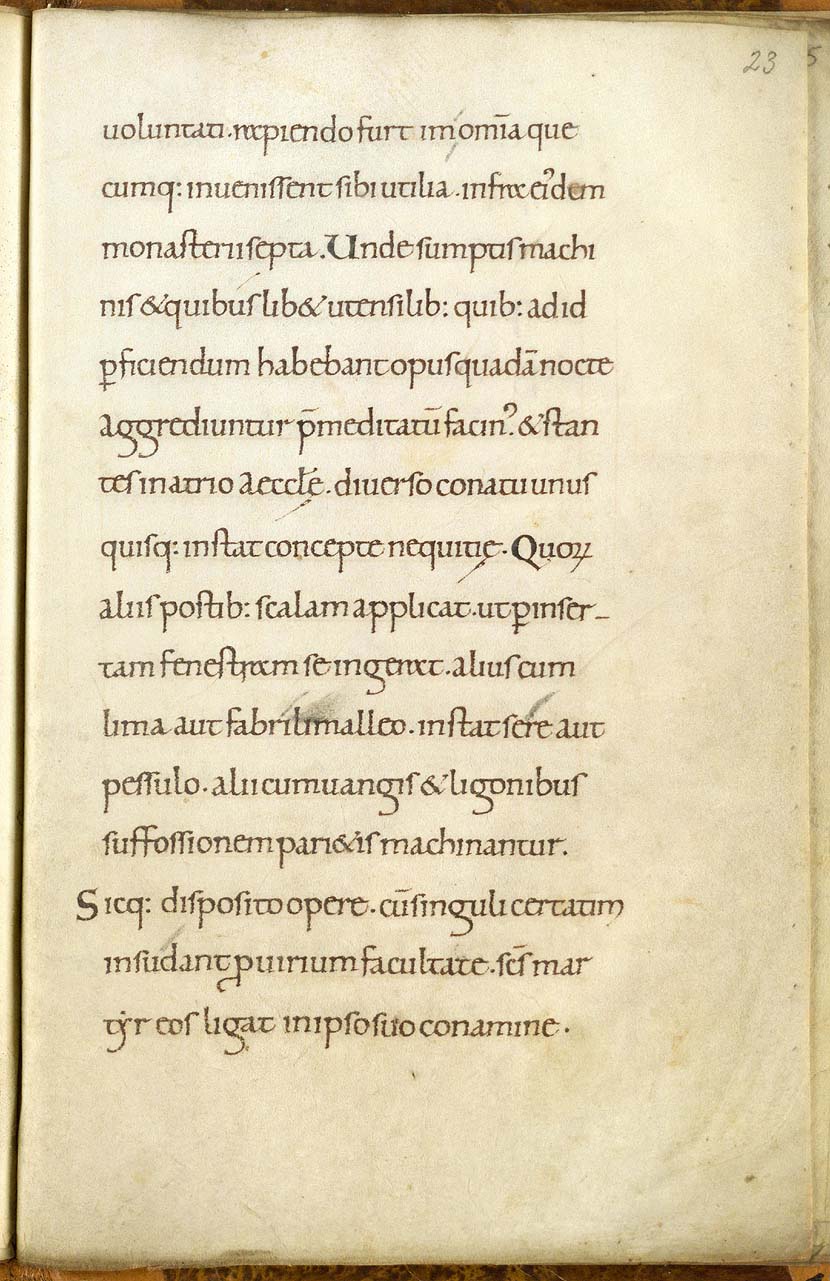 23
5
uoluntati. rapiendo furt im om̄ia que
cumq: inuenissent sibi utilia. infra eiꝰdem
monasterii septa. Unde sumptis machi
nis & quibuslib& utensilib: quib: ad id
ꝑficiendum habebant opus quadā nocte
aggrediuntur p̄meditatū facinꝰ. & stan
tes in atrio aeccłę. diuerso conatu unus
quisq: instat concepte nequitię. Quoꝝ
alius postib: scalam applicat. ut ꝑ inser-
tam fenestram se ingerat. alius cum
lima aut fabrili malleo. instat sere aut
pessulo. alii cum uangis & ligonibus
suffossionem pari&is machinantur.
Sicq: disposito opere. cū singuli certatim
insudant ꝓ uirium facultate. sc̄s mar
tẏr eos ligat in ipso suo conamine.